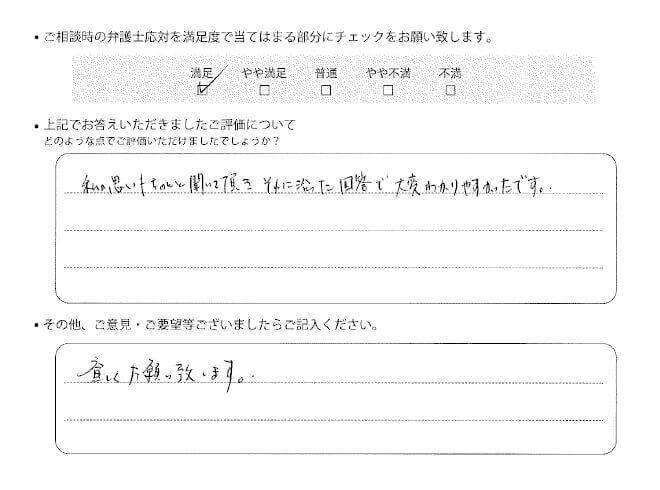 ・ご相談時の弁護士応対を満足度で当てはまる部分にチェックをお願い致します。
満足 やや満足 普通 やや不満 不満
☑ □ □ □ □
・上記でお答えいただきましたご評価について
どのような点でご評価いただけましたでしょうか？
私の思いもちゃんと聞いて頂き それに沿った回答で 大変わかりやすかったです。
・その他、ご意見・ご要望等ございましたらご記入ください。
宜しくお願い致します。